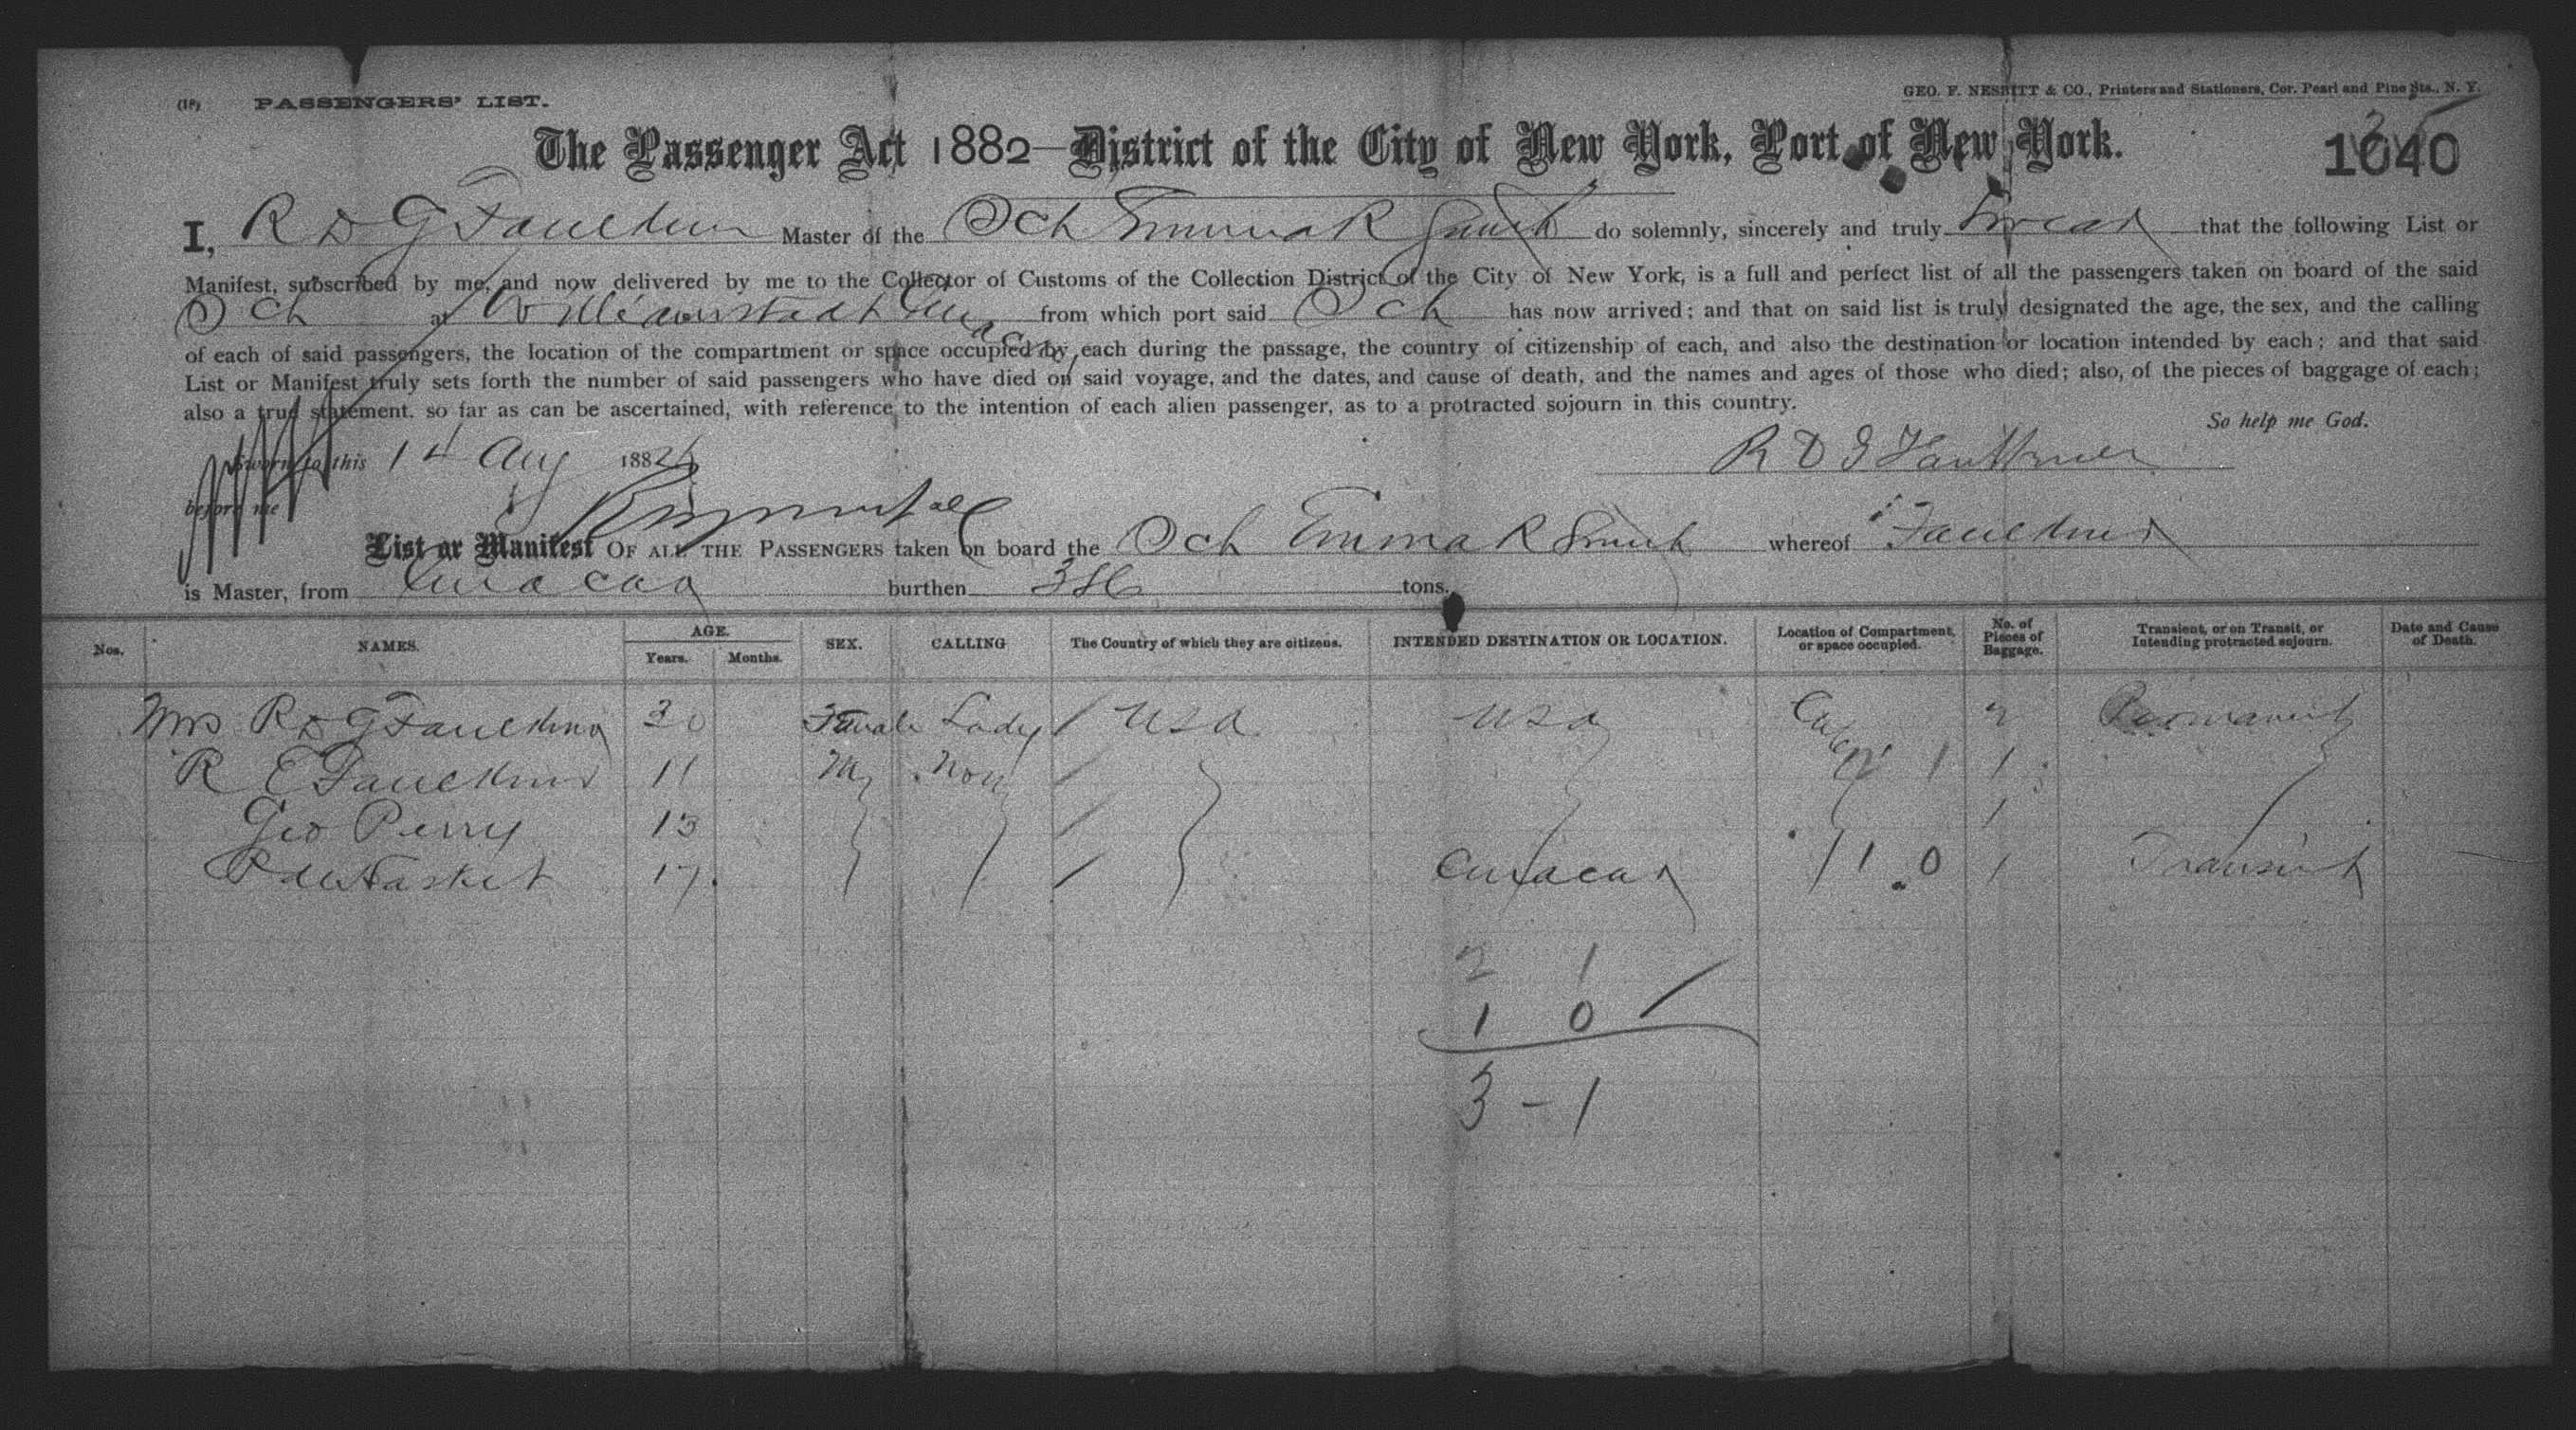 (18) PASSENGERS' LIST.
GEO. F. NESBITT & CO., Printers and Stationers, Cor. Pearl and Pine Sts., N. Y.
The Passenger Act 1882—District of the City of New York, Port of New York.
1040
I, R D G Faulkner Master of the Sch Emma R Smith do solemnly, sincerely and truly Swear that the following List or
Manifest, subscribed by me, and now delivered by me to the Collector of Customs of the Collection District of the City of New York, is a full and perfect list of all the passengers taken on board of the said
Sch at Williamstadt Curacao from which port said Sch has now arrived; and that on said list is truly designated the age, the sex, and the calling
of each of said passengers, the location of the compartment or space occupied by each during the passage, the country of citizenship of each, and also the destination or location intended by each; and that said
List or Manifest truly sets forth the number of said passengers who have died on said voyage, and the dates, and cause of death, and the names and ages of those who died; also, of the pieces of baggage of each;
also a true statement. so far as can be ascertained, with reference to the intention of each alien passenger, as to a protracted sojourn in this country.
So help me God.
Sworn to this 14 Aug 188
R D G Faulkner
before me
List or Manifest OF ALL THE PASSENGERS taken on board the Sch Emma R Smith whereof Faulkner
is Master, from Curacao burthen tons.
Nos. NAMES. AGE. Years. Months. SEX. CALLING The Country of which they are citizens. INTENDED DESTINATION OR LOCATION. Location of Compartment, or space occupied. No. of Pieces of Baggage. Transient, or on Transit, or Intending protracted sojourn. Date and Cause of Death.
Mrs R D G Faulkner 30 Female Lady / USA USA Cabin 2 Permanent
R E Faulkner 11 M Non / 1 1
Geo Perry 13 / 1
17 / Curacao 1 0 1 Transient
2 1
1 0
3 - 1